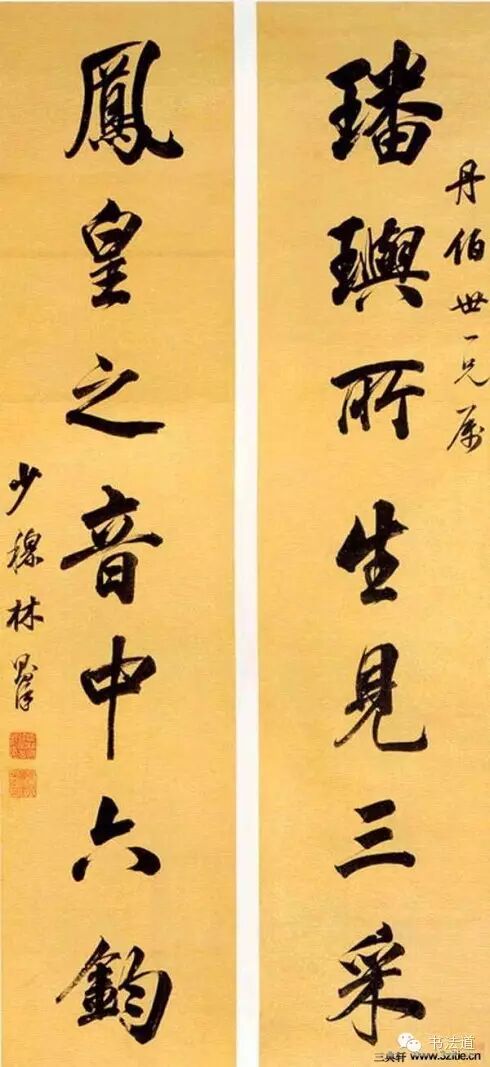 丹伯世一兄属
璠璵所生見三采
鳳皇之音中六鈞
少穆林則徐
书法道
三典轩 www.3zitie.cn